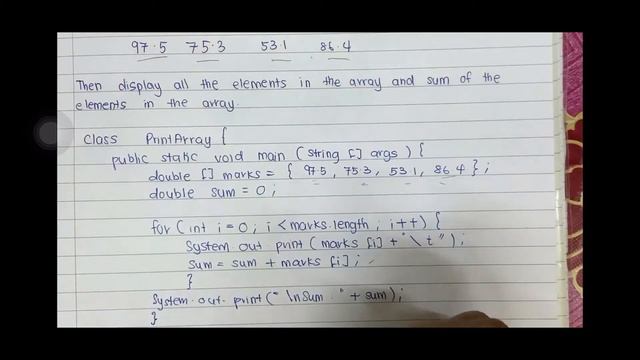 97.5 75.3 53.1 86.4
Then display all the elements in the array and sum of the
elements in the array.
Class PrintArray {
public static void main (String [] args) {
double [] marks = { 97.5, 75.3, 53.1, 86.4 } ;
double sum = 0 ;
for (int i = 0 ; i < marks.length ; i++) {
System out print (marks [i] + "\t") ;
sum = sum + marks [i] ;
}
System.out.print (" \nSum : " + sum) ;
}